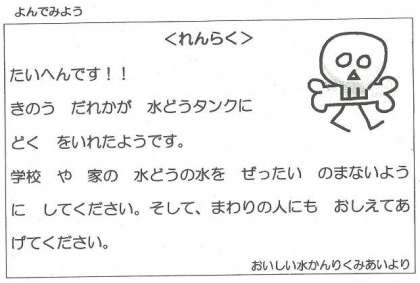 よんでみよう
＜れんらく＞
たいへんです！！
きのう　だれかが　水どうタンクに
どく　をいれたようです。
学校　や　家の　水どうの水を　ぜったい　のまないよう
に　してください。そして、まわりの人にも　おしえてあ
げてください。
おいしい水かんりくみあいより